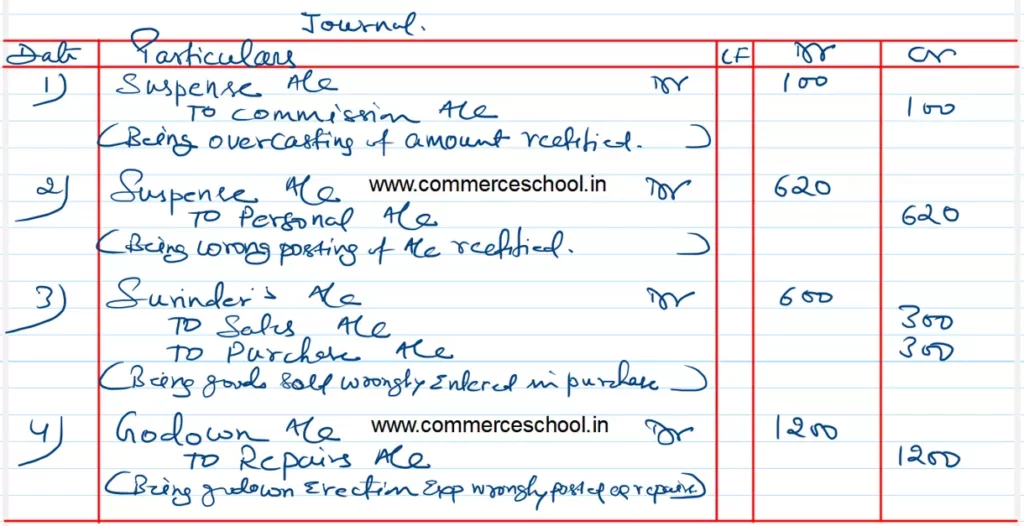 Journal.
Date Particulars LF Dr Cr
1) Suspense A/c Dr 100
To Commission A/c 100
(Being overcasting of amount rectified. )
2) Suspense A/c www.commerceschool.in Dr 620
To Personal A/c 620
(Being wrong posting of A/c rectified. )
3) Surinder's A/c Dr 600
To Sales A/c 300
To Purchase A/c 300
(Being goods sold wrongly Entered in purchase )
4) Godown A/c www.commerceschool.in Dr 1200
To Repairs A/c 1200
(Being godown Erection Exp wrongly posted as repairs)